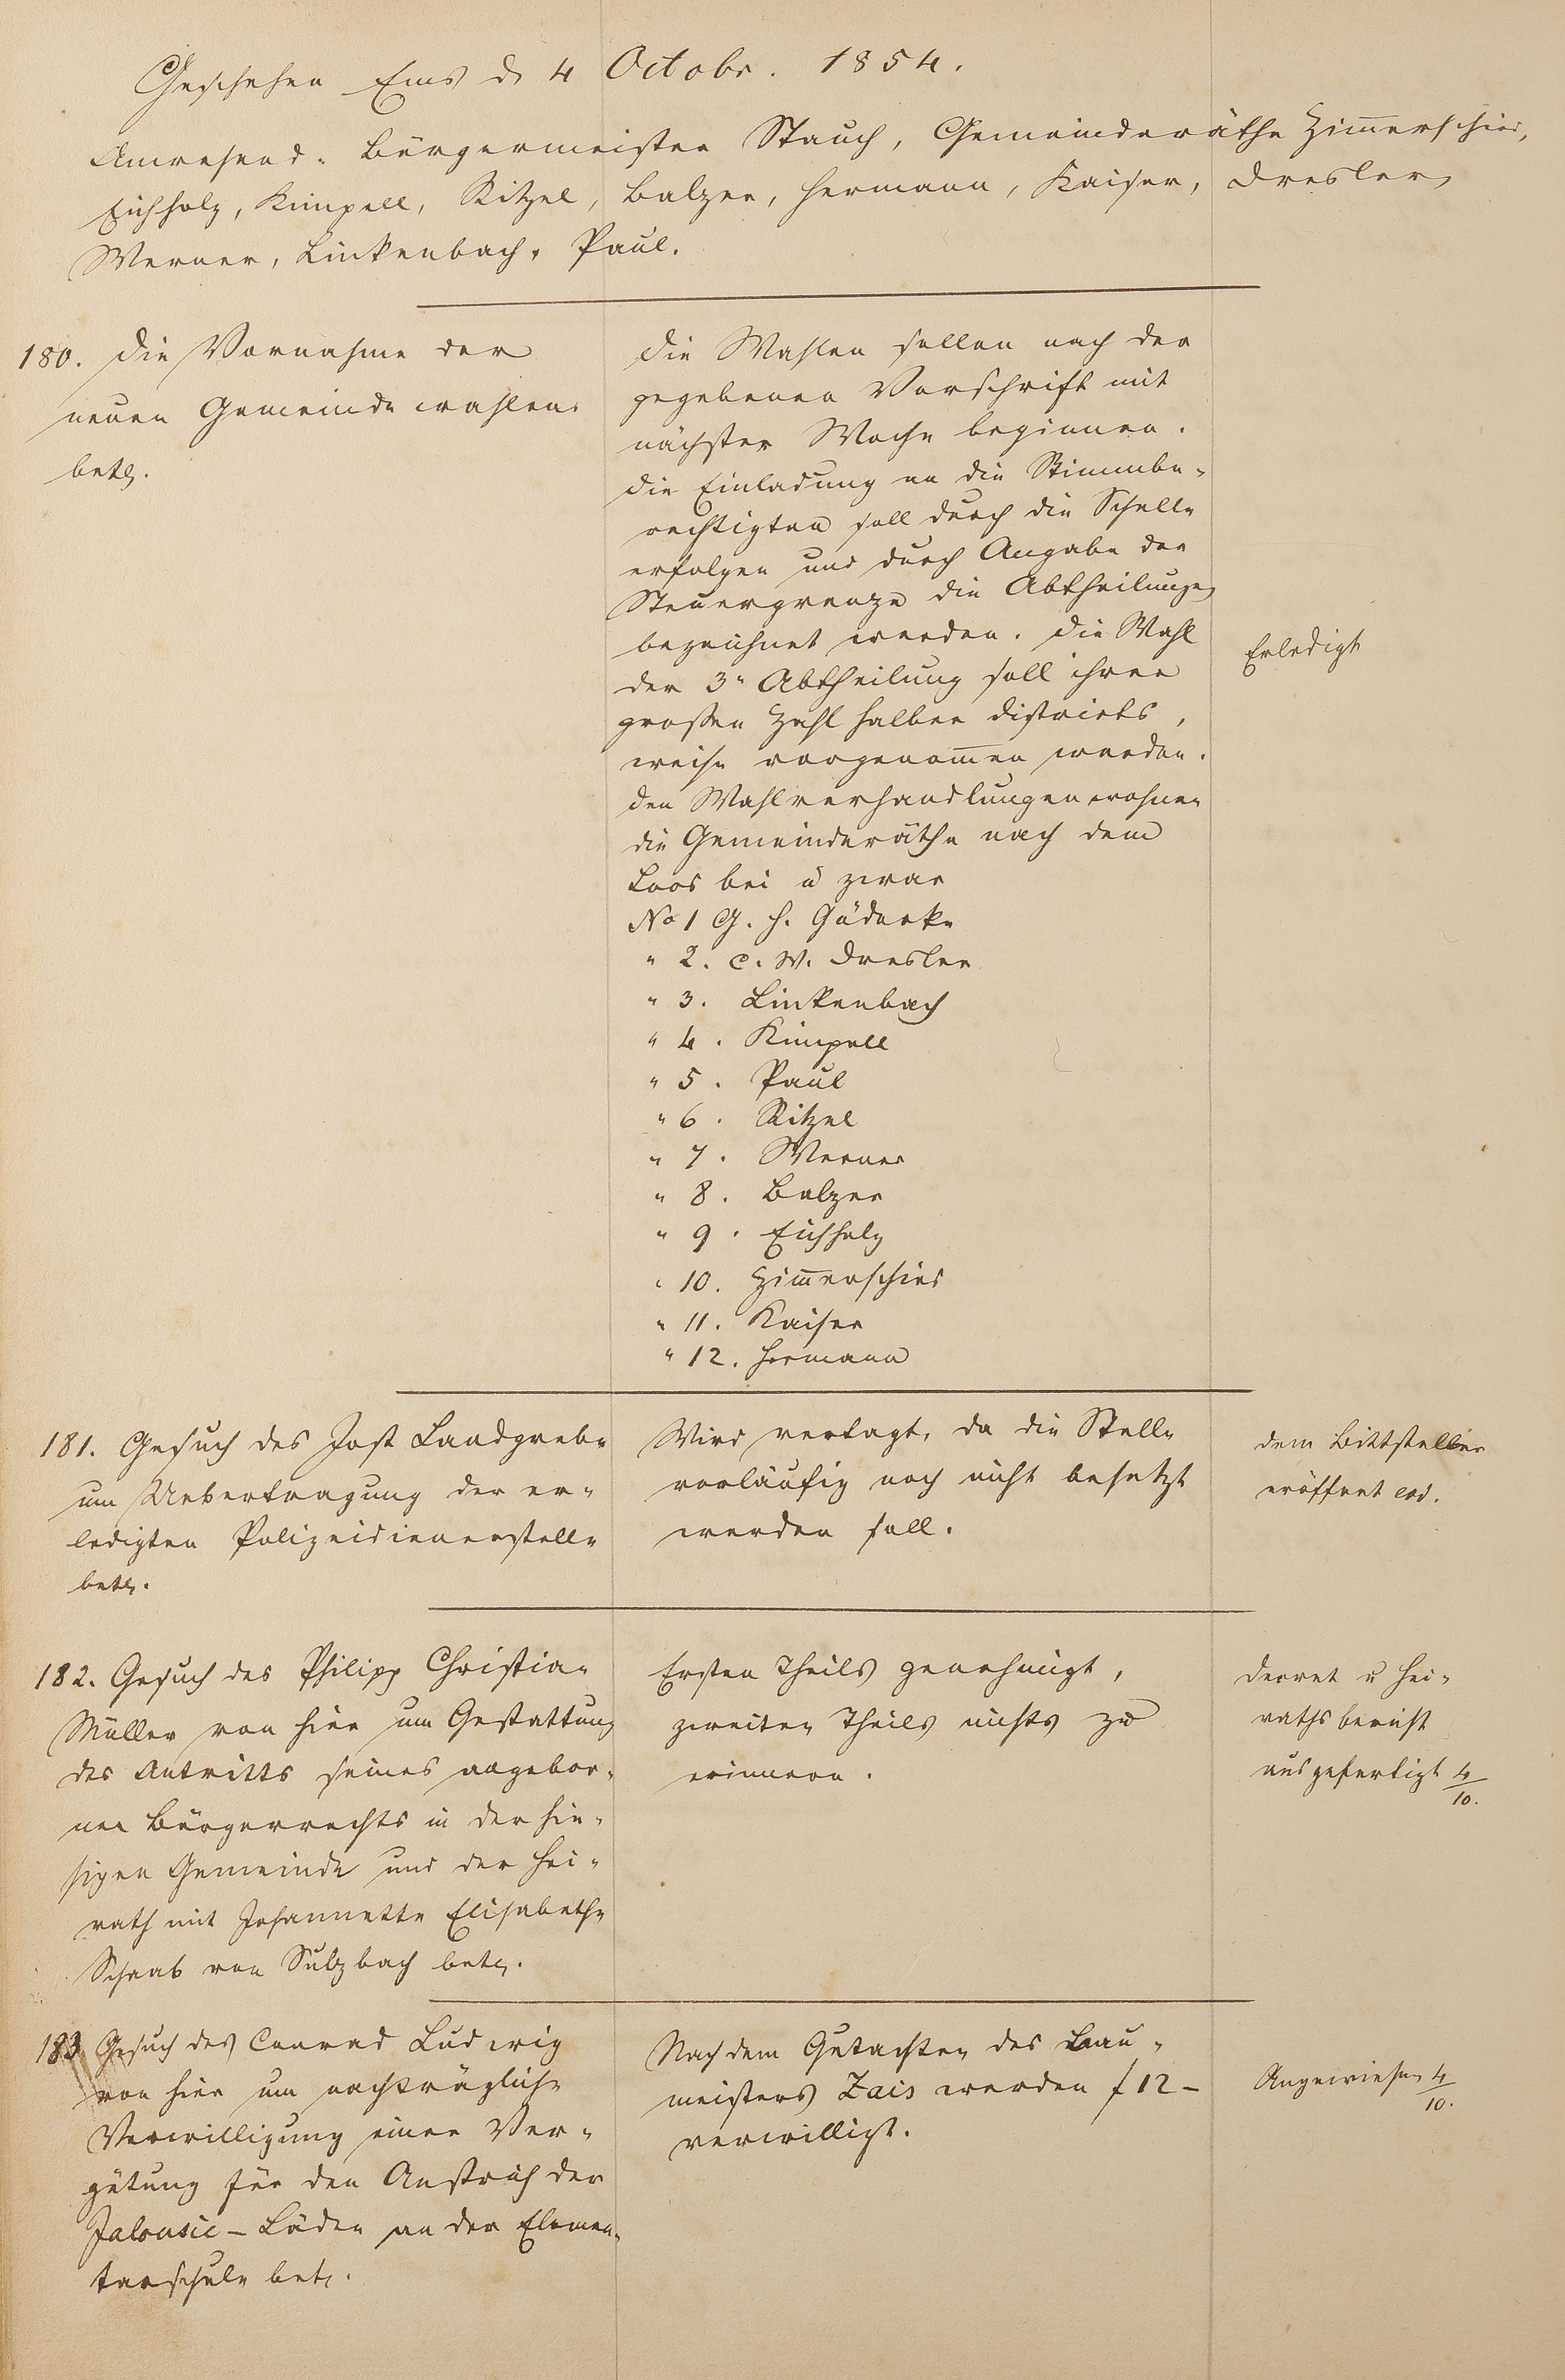 Geschehen Ems d 4 Octobr. 1854.
Anwesend: Bürgermeister Stauch, Gemeinderäthe Zim̅erschied,
Eichholz, Kimpell, Ritzel, Balzer, Hermann, Kaiser, Dresler,
Werner, Linkenbach, Paul.
180. Die Vornahme der
neuen Gemeindewahlen
betr.
Die Wahlen sollen nach der
gegebenen Vorschrift mit
nächster Woche beginnen.
Die Einladung an die Stimmbe-
rechtigten soll durch die Schelle
erfolgen und durch Angabe der
Steuergrenze die Abtheilungen
bezeichnet werden. Die Wahl
der 3n Abtheilung soll ihrer
großen Zahl halber districts,
weise vorgenom̅en werden.
Den Wahlverhandlungen wohnen
die Gemeinderäthe nach dem
Loos bei u zwar
No 1 G. H. Gödecke
" 2. C. W. Dresler
" 3. Linkenbach
" 4. Kimpell
" 5. Paul
" 6. Ritzel
" 7. Werner
" 8. Balzer
" 9. Eichholz
" 10. Zim̅erschied
" 11. Kaiser
" 12. Hermann
Erledigt
181. Gesuch des Jost Landgrebe
um Uebertragung der er-
ledigten Polizeidienerstelle
betr.
Wird vertagt, da die Stelle
vorläufig noch nicht besetzt
werden soll.
Dem Bittsteller
eröffnet eod.
182. Gesuch des Philipp Christian
Müller von hier um Gestattung
des Antritts seines angebor-
nen Bürgerrechts in der hie-
sigen Gemeinde und der Hei-
rath mit Johannette Elisabethe
Schaab von Sulzbach betr.
Ersten Theils genehmigt,
zweiten Theils nichts zu
erinnern.
Decret u Hei-
rathsbericht
ausgefertigt 4/10.
183 Gesuch des Conrad Ludwig
von hier um nachträgliche
Verwilligung einer Ver-
gütung für den Anstrich der
Jalousie - Läden an der Elemen-
tarschule betr.
Nach dem Gutachten des Bau-
meisters Zais werden f 12 -
verwilligt.
Angewiesen 4/10.